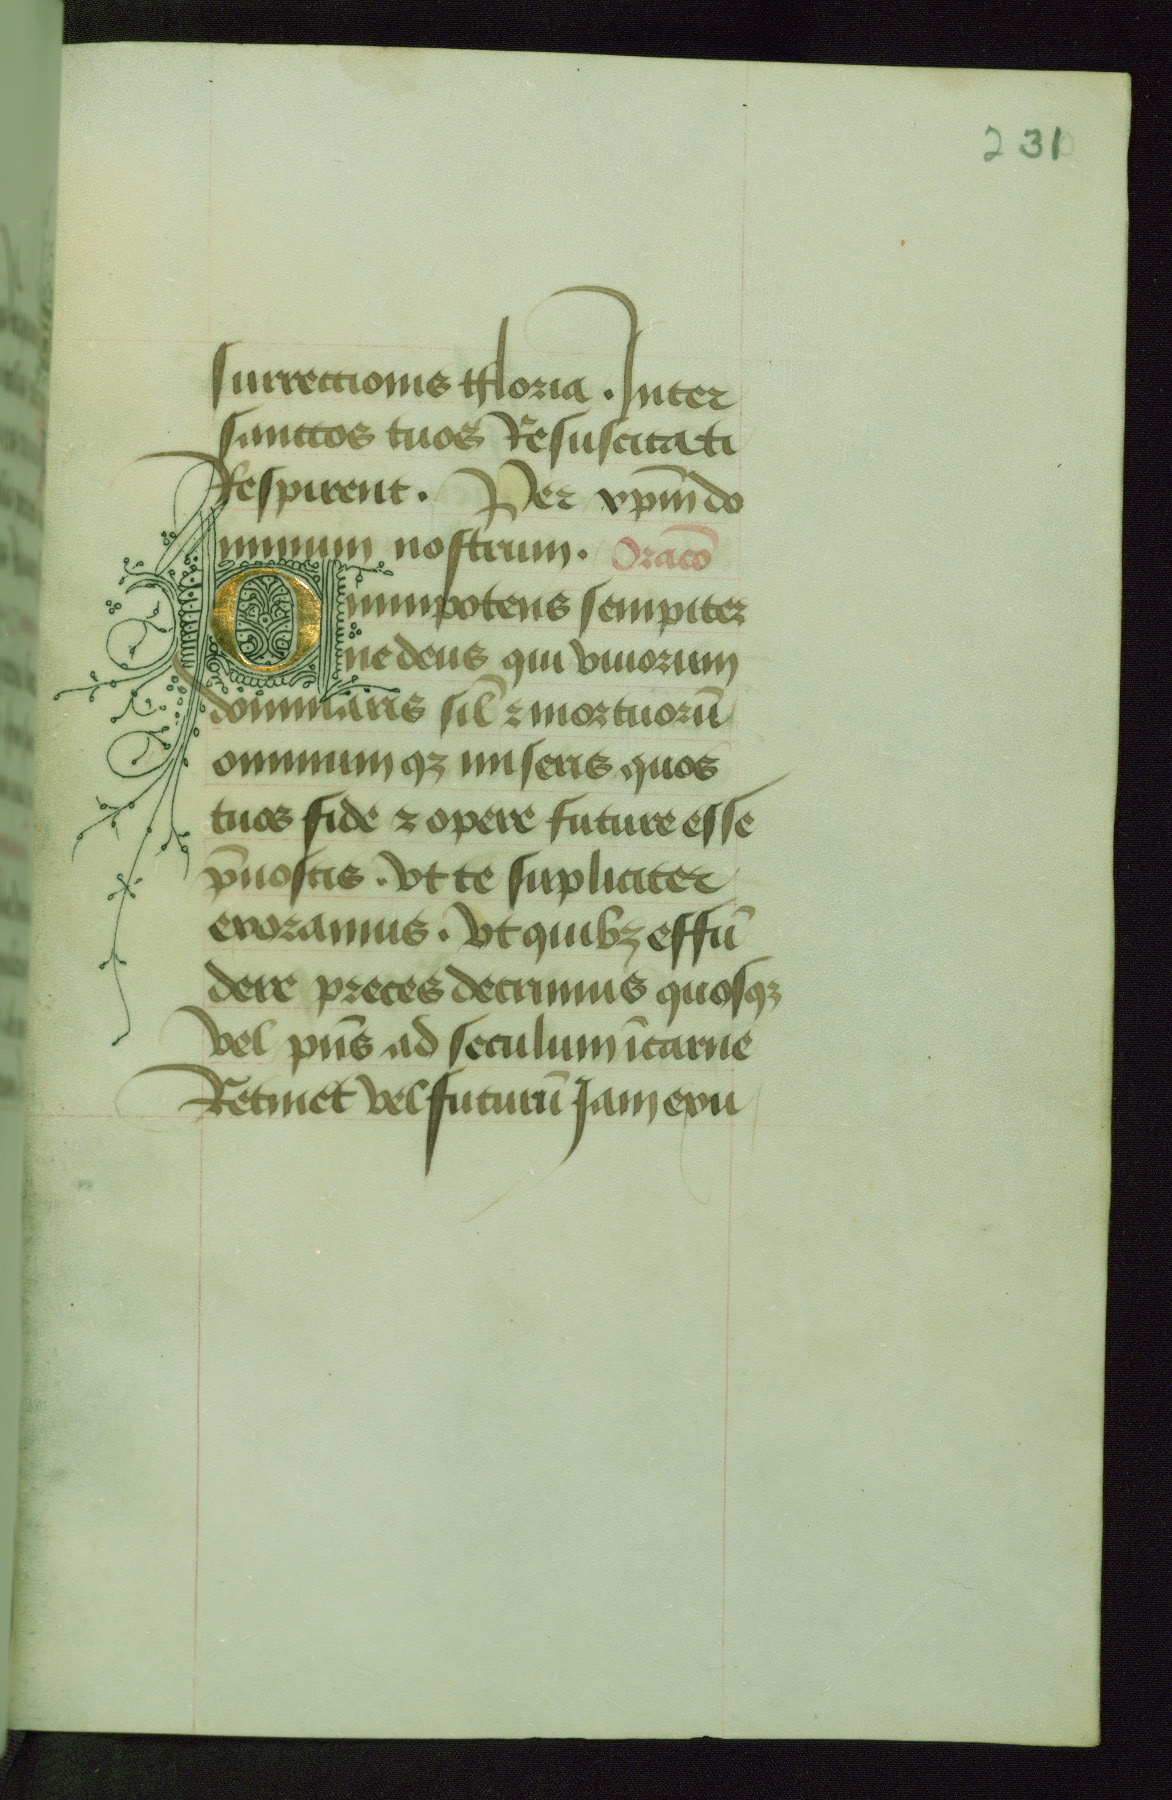 231
surrectionis gloria . Inter
sanctos tuos Resuscitati
Respirent . Per xp̄m do
minum nostrum . Oracō
Omnipotens sempiter
ne deus qui viuorum
dominaris sil̄ ⁊ mortuorū
omnium qꝫ miseris quos
tuos fide ⁊ opere future esse
p̄noscis . Vt te supliciter
exoramus . Vt quibꝫ effū
dere preces decrimus quosqꝫ
vel pn̄s ad seculum ī carne
Retinet vel futurū Jam exu